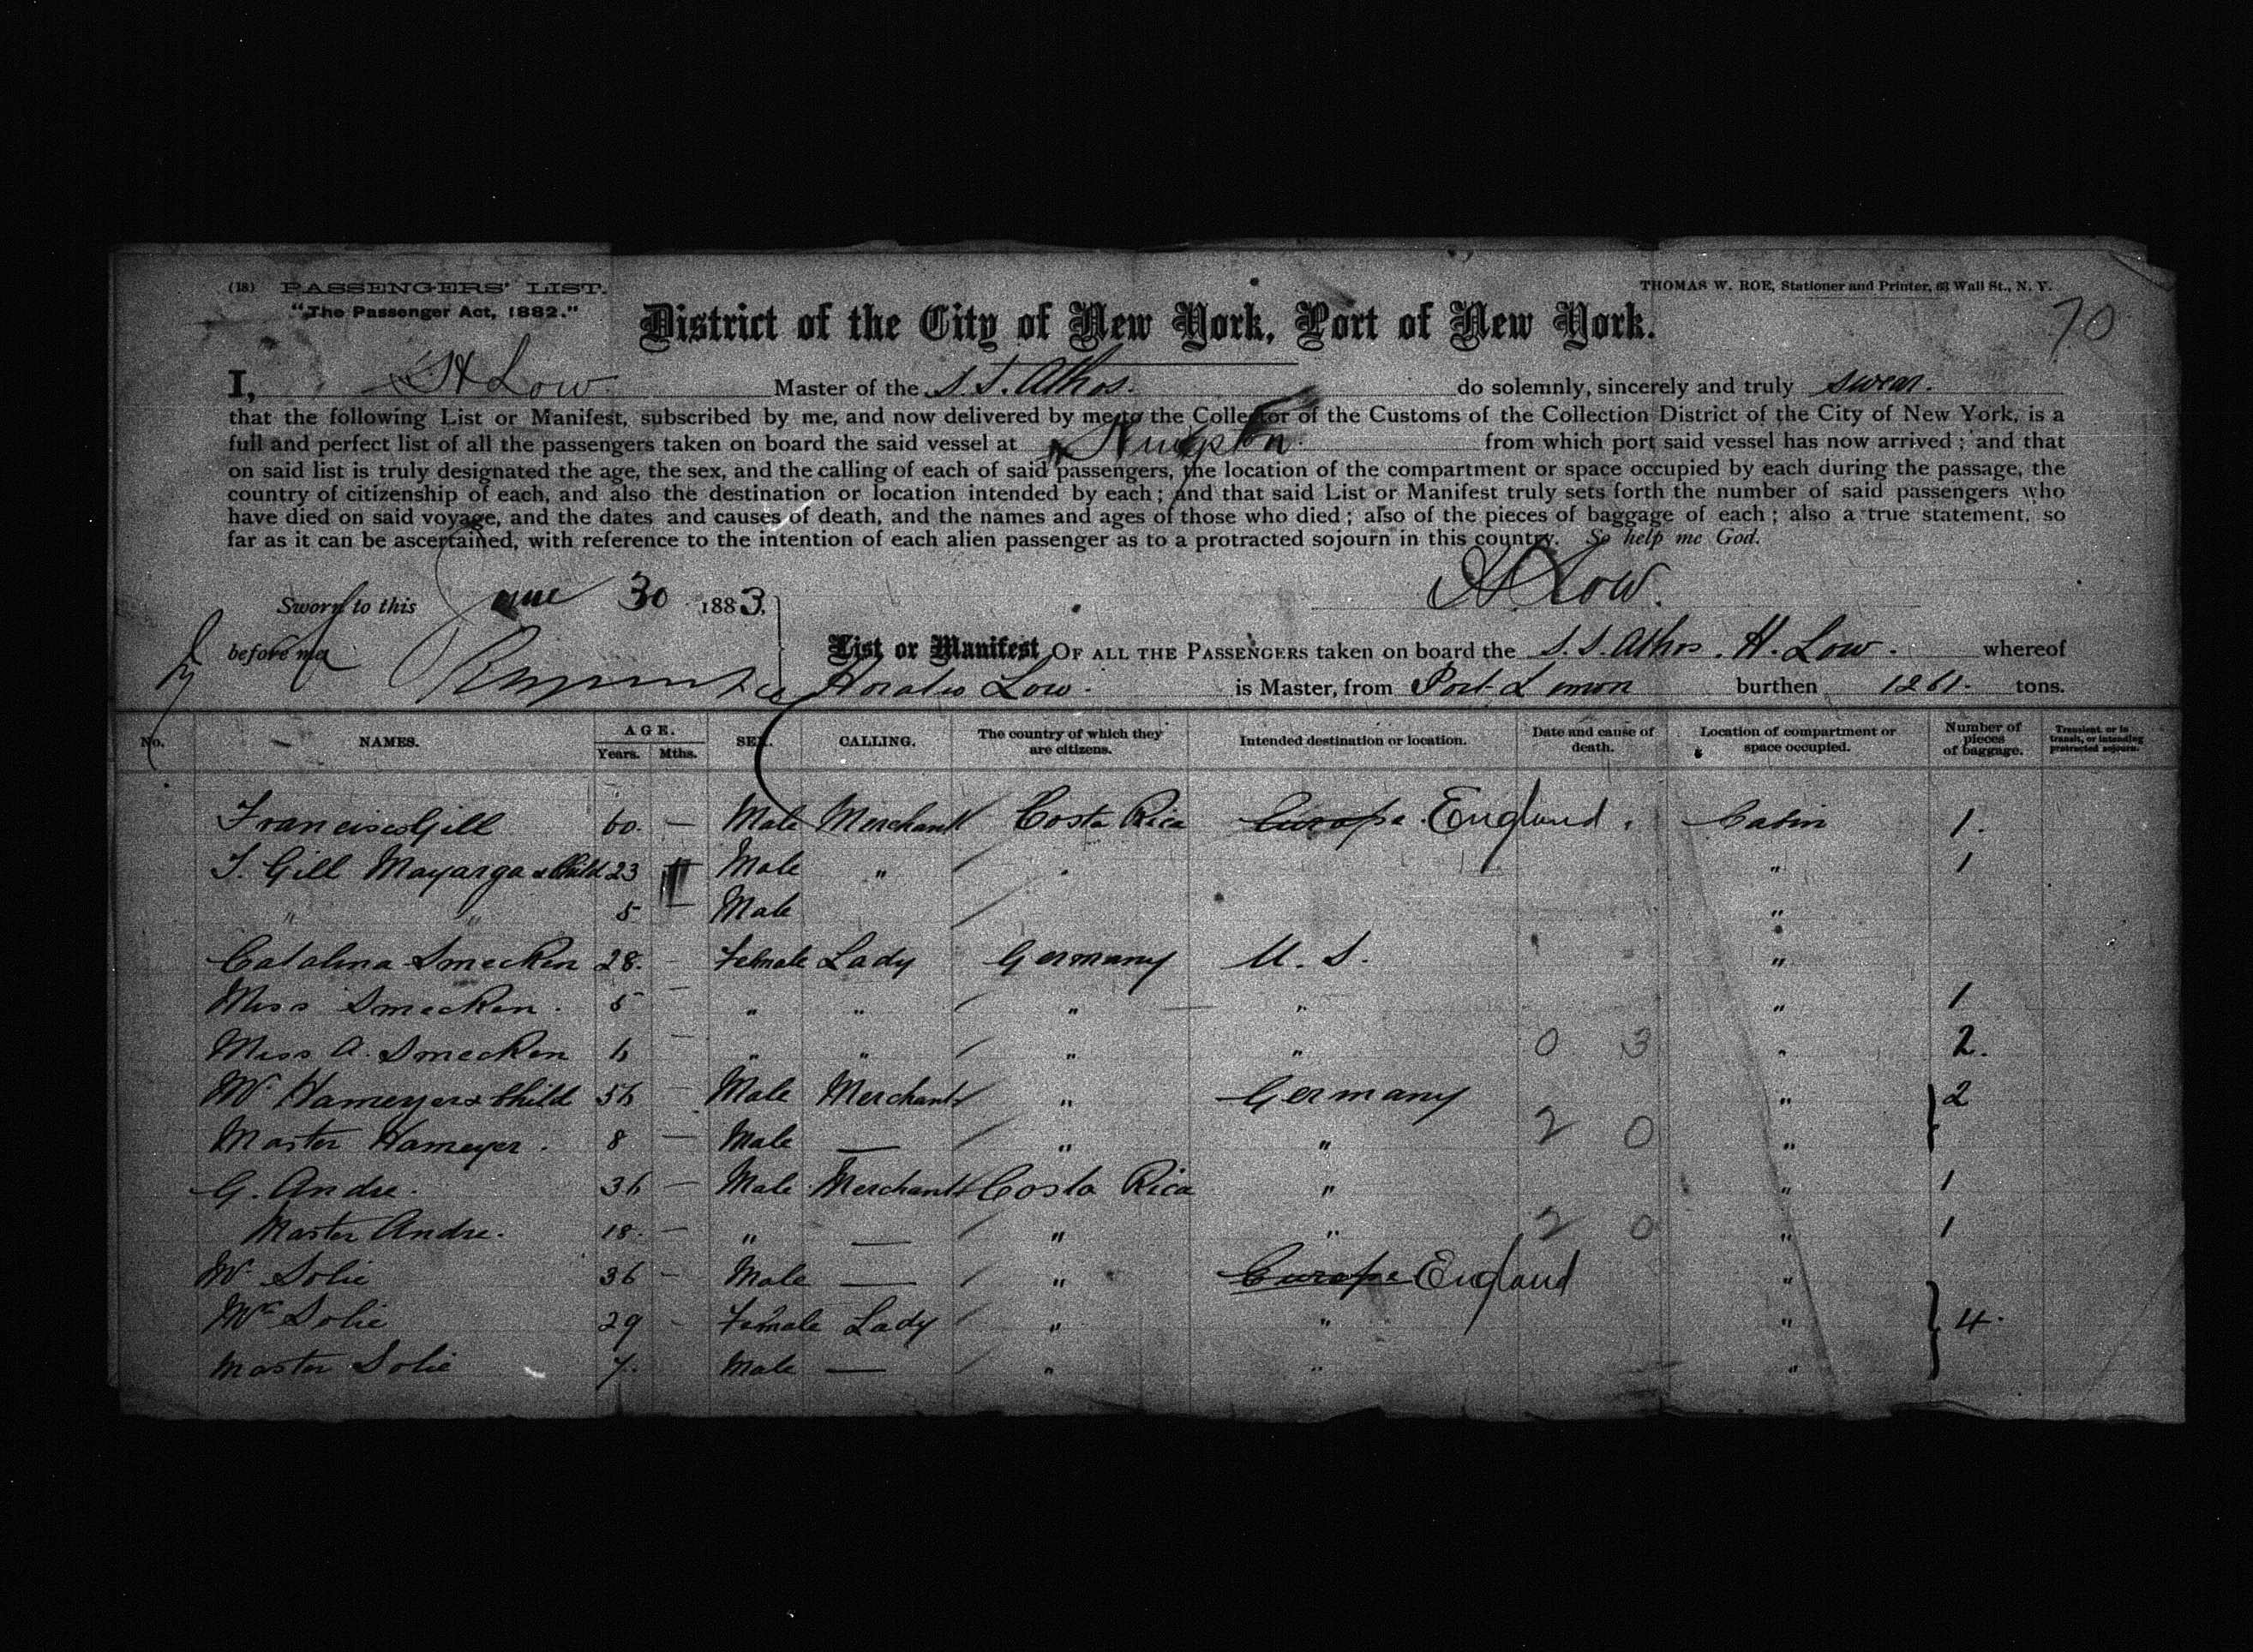 (18) PASSENGERS' LIST.
"The Passenger Act, 1882."
THOMAS W. ROE, Stationer and Printer, 63 Wall St., N. Y.
70
District of the City of New York, Port of New York.
I, H Low Master of the S. S. Athos. do solemnly, sincerely and truly swear.
that the following List or Manifest, subscribed by me, and now delivered by me to the Collector of the Customs of the Collection District of the City of New York, is a
full and perfect list of all the passengers taken on board the said vessel at Kingston from which port said vessel has now arrived; and that
on said list is truly designated the age, the sex, and the calling of each of said passengers, the location of the compartment or space occupied by each during the passage, the
country of citizenship of each, and also the destination or location intended by each; and that said List or Manifest truly sets forth the number of said passengers who
have died on said voyage, and the dates and causes of death, and the names and ages of those who died; also of the pieces of baggage of each; also a true statement, so
far as it can be ascertained, with reference to the intention of each alien passenger as to a protracted sojourn in this country. So help me God.
Sworn to this June 30 1883. H. Low.
before me
List or Manifest OF ALL THE PASSENGERS taken on board the S. S. Athos. H. Low. whereof
Horatio Low. is Master, from Port Limon burthen 1261. tons.
No. NAMES. AGE. Years. Mths. SEX. CALLING. The country of which they are citizens. Intended destination or location. Date and cause of death. Location of compartment or space occupied. Number of pieces of baggage. Transient, or in transit, or intending protracted sojourn.
Francisco Gill 60. — Male Merchant Costa Rica Europe. England. Cabin 1.
J. Gill Mayarga & Child 23 Male " " 1
" " 5 — Male "
Catalina Smecken 28. - Female Lady Germany U. S. "
Miss Smecken. 5 - " " " " " 1
Miss A. Smecken 6 - " " " " 0 3 " 2.
Mr Hameyer & Child 56 - Male Merchant " Germany " 2
Master Hameyer. 8 — Male — " " 2 0 "
G. Andre. 36 — Male Merchant Costa Rica " " 1
Master Andre. 18. — " — " " 2 0 " 1
Mr Solie 36 - Male — " Europe England "
Mrs Solie 29 - Female Lady " " " 4.
Master Solie 7. Male — " " "